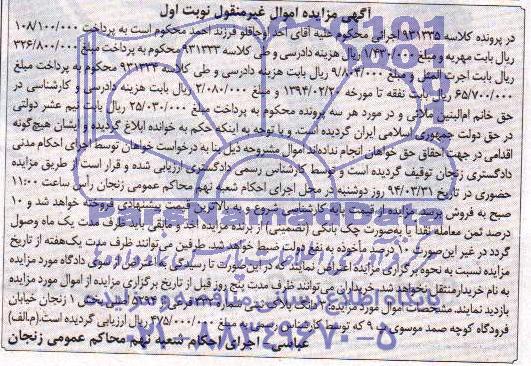 آگهی مزایده اموال غیرمنقول نوبت اول
در پرونده کلاسه ۹۳۱۳۳۵ اجرائی محکوم علیه آقای احد اوجاقلو فرزند احمد محکوم است به پرداخت ۱۰۸/۱۰۰/۰۰۰
ریال بابت مهریه و مبلغ ۱/۴۳۰/۰۰۰ ریال هزینه دادرسی و طی کلاسه ۹۳۱۳۳۳ محکوم به پرداخت مبلغ ۳۲۶/۸۰۰/۰۰۰
ریال بابت اجرت المثل و مبلغ ۹/۸۰۴/۰۰۰ ریال بابت هزینه دادرسی و طی کلاسه محکوم به پرداخت مبلغ
۶۵/۷۰۰/۰۰۰ ریال بابت نفقه تا مورخه ۱۳۹۴/۰۲/۲۰ و مبلغ ۲/۰۸۰/۰۰۰ ریال بابت هزینه دادرسی و کارشناسی در
حق خانم ام‌البنین ملائی و در مورد هر سه پرونده محکوم به پرداخت مبلغ ۲۵/۰۳۰/۰۰۰ ریال بابت نیم عشر دولتی
در حق دولت جمهوری اسلامی ایران گردیده است. و با توجه به اینکه حکم به خوانده ابلاغ گردیده و ایشان هیچگونه
اقدامی در جهت احقاق حق خواهان انجام نداده‌اند اموال مشروحه ذیل بنا به درخواست خواهان توسط اجرای احکام مدنی
دادگستری زنجان توقیف گردیده است و توسط کارشناس رسمی دادگستری ارزیابی شده و قرار است از طریق مزایده
حضوری در تاریخ ۹۴/۰۳/۳۱ روز دوشنبه در محل اجرای احکام شعبه نهم محاکم عمومی زنجان رأس ساعت ۱۱:۰۰
صبح به فروش برسد. مزایده از قیمت پایه کارشناسی شروع و به بالاترین قیمت پیشنهادی فروخته خواهد شد و ۱۰
درصد ثمن معامله نقدا یا به‌صورت چک بانکی (تضمینی) از برنده مزایده اخذ و مابقی باید ظرف مدت یک ماه وصول
گردد در غیر این‌صورت ۱۰ درصد مأخوذه به نفع دولت ضبط خواهد شد. طرفین می‌توانند ظرف مدت یک‌هفته از تاریخ
مزایده نسبت به نحوه برگزاری مزایده اعتراض نمایند که در این صورت تا رسیدگی به اعتراض از سوی دادگاه مورد مزایده
به نام خریدار منتقل نخواهد شد. خریداران می‌توانند ظرف مدت پنج روز قبل از تاریخ برگزاری مزایده از اموال مورد مزایده
بازدید نمایند. مشخصات اموال مورد مزایده: ۱- ملک پلاک ثبتی شماره فرعی از اصلی بخش ۱ زنجان خیابان
فرودگاه کوچه صمد موسوی پ ۹ که توسط کارشناس رسمی به مبلغ ۴۷۵/۰۰۰/۰۰۰ ریال ارزیابی گردیده است. (م.الف)
عباسی - اجرای احکام شعبه نهم محاکم عمومی زنجان
ParsNamadData
پایگاه اطلاع رسانی مناقصه و مزایده
۰۲۱-۸۸۳۴۹۶۷۰-۵